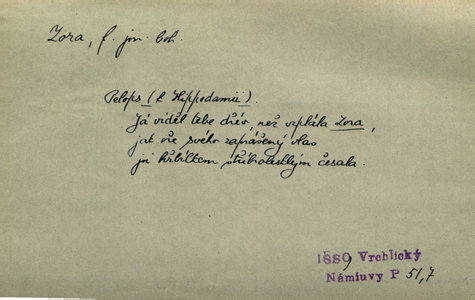 Zora, f. jm. boh.
Pelops (k Hippodamii).
Já viděl tebe dřív, než vzplála Zora,
jak vůz svého zaprášený vlas
jsi hřbílkem stříbrolesklým česala.
1889 Vrchlický
Námluvy P 51,7